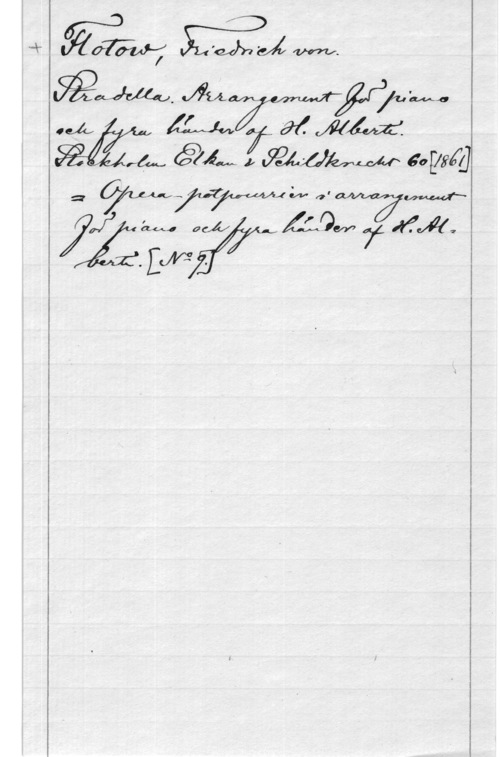 + Flotow, Friedrich von.
Stradella. Arrangement för piano
och fyra händer af H. Alberti.
Stockholm Elkan & Schildknecht 60 [1861]
= Opera-potpourrier i arrangement
för piano och fyra händer af H. Al-
berti. [No 9.]